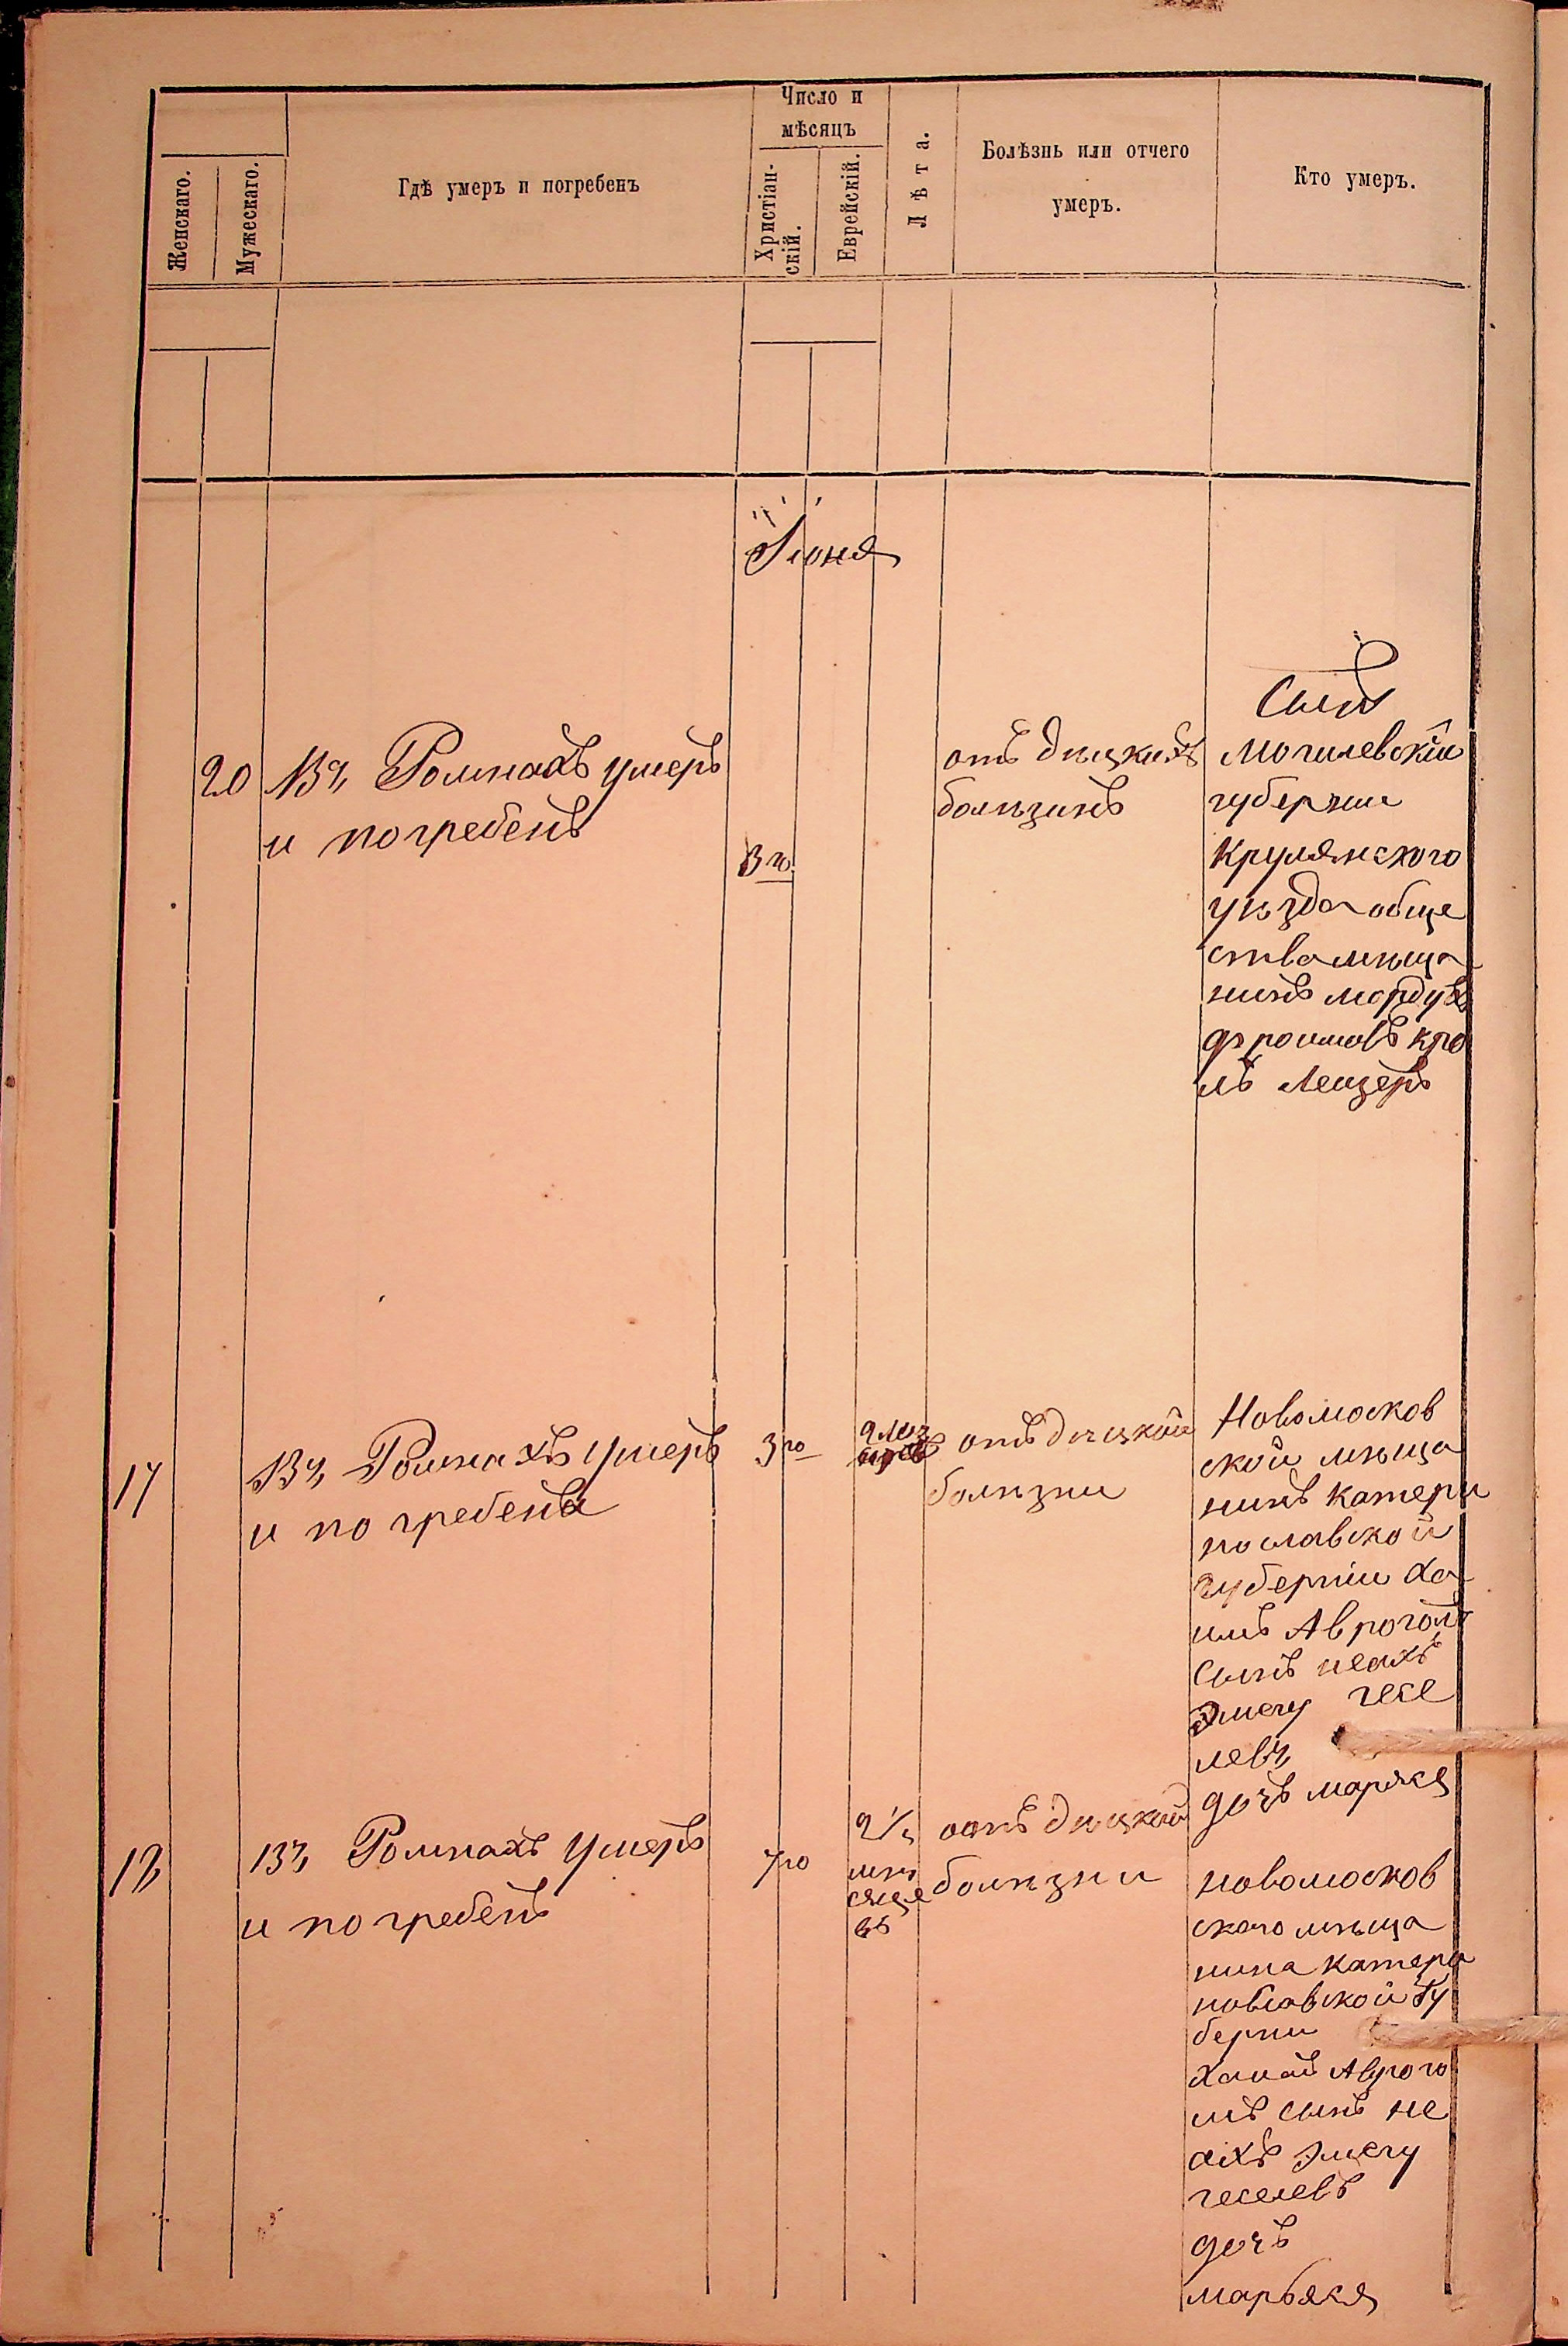 Женскаго.
Мужескаго.
Гдѣ умеръ и погребенъ
Число и
мѣсяцъ
Христіан-
скій.
Еврейскій.
Лѣта.
Болѣзнь или отчего
умеръ.
Кто умеръ.
Іюня
20
Въ Ромнахъ умеръ
и погребенъ
3го
отъ дѣцкихъ
болѣзинъ
Сынъ
Могилевскій
губернии
ского
уѣзда обще
ства мѣща
нинъ Мордухъ
Лейзеръ
17
Въ Ромнахъ умеръ
и погребена
3го
отъ дѣцкой
болѣзни
Новомосков
ской мѣща
нинъ катери
нославской
губерніи Ха
имъ Аврогомъ
сынъ
гесе
левъ
дочъ
18
Въ Ромнахъ умеръ
и погребенъ
7го
2½
мѣ
сяце
въ
отъ дѣцкой
болѣзни
новомосков
ского мѣща
нина катери
нославской гу
берни
Хаимъ Аврого
мъ сынъ не
ахъ
геселевъ
дочъ
марьяся